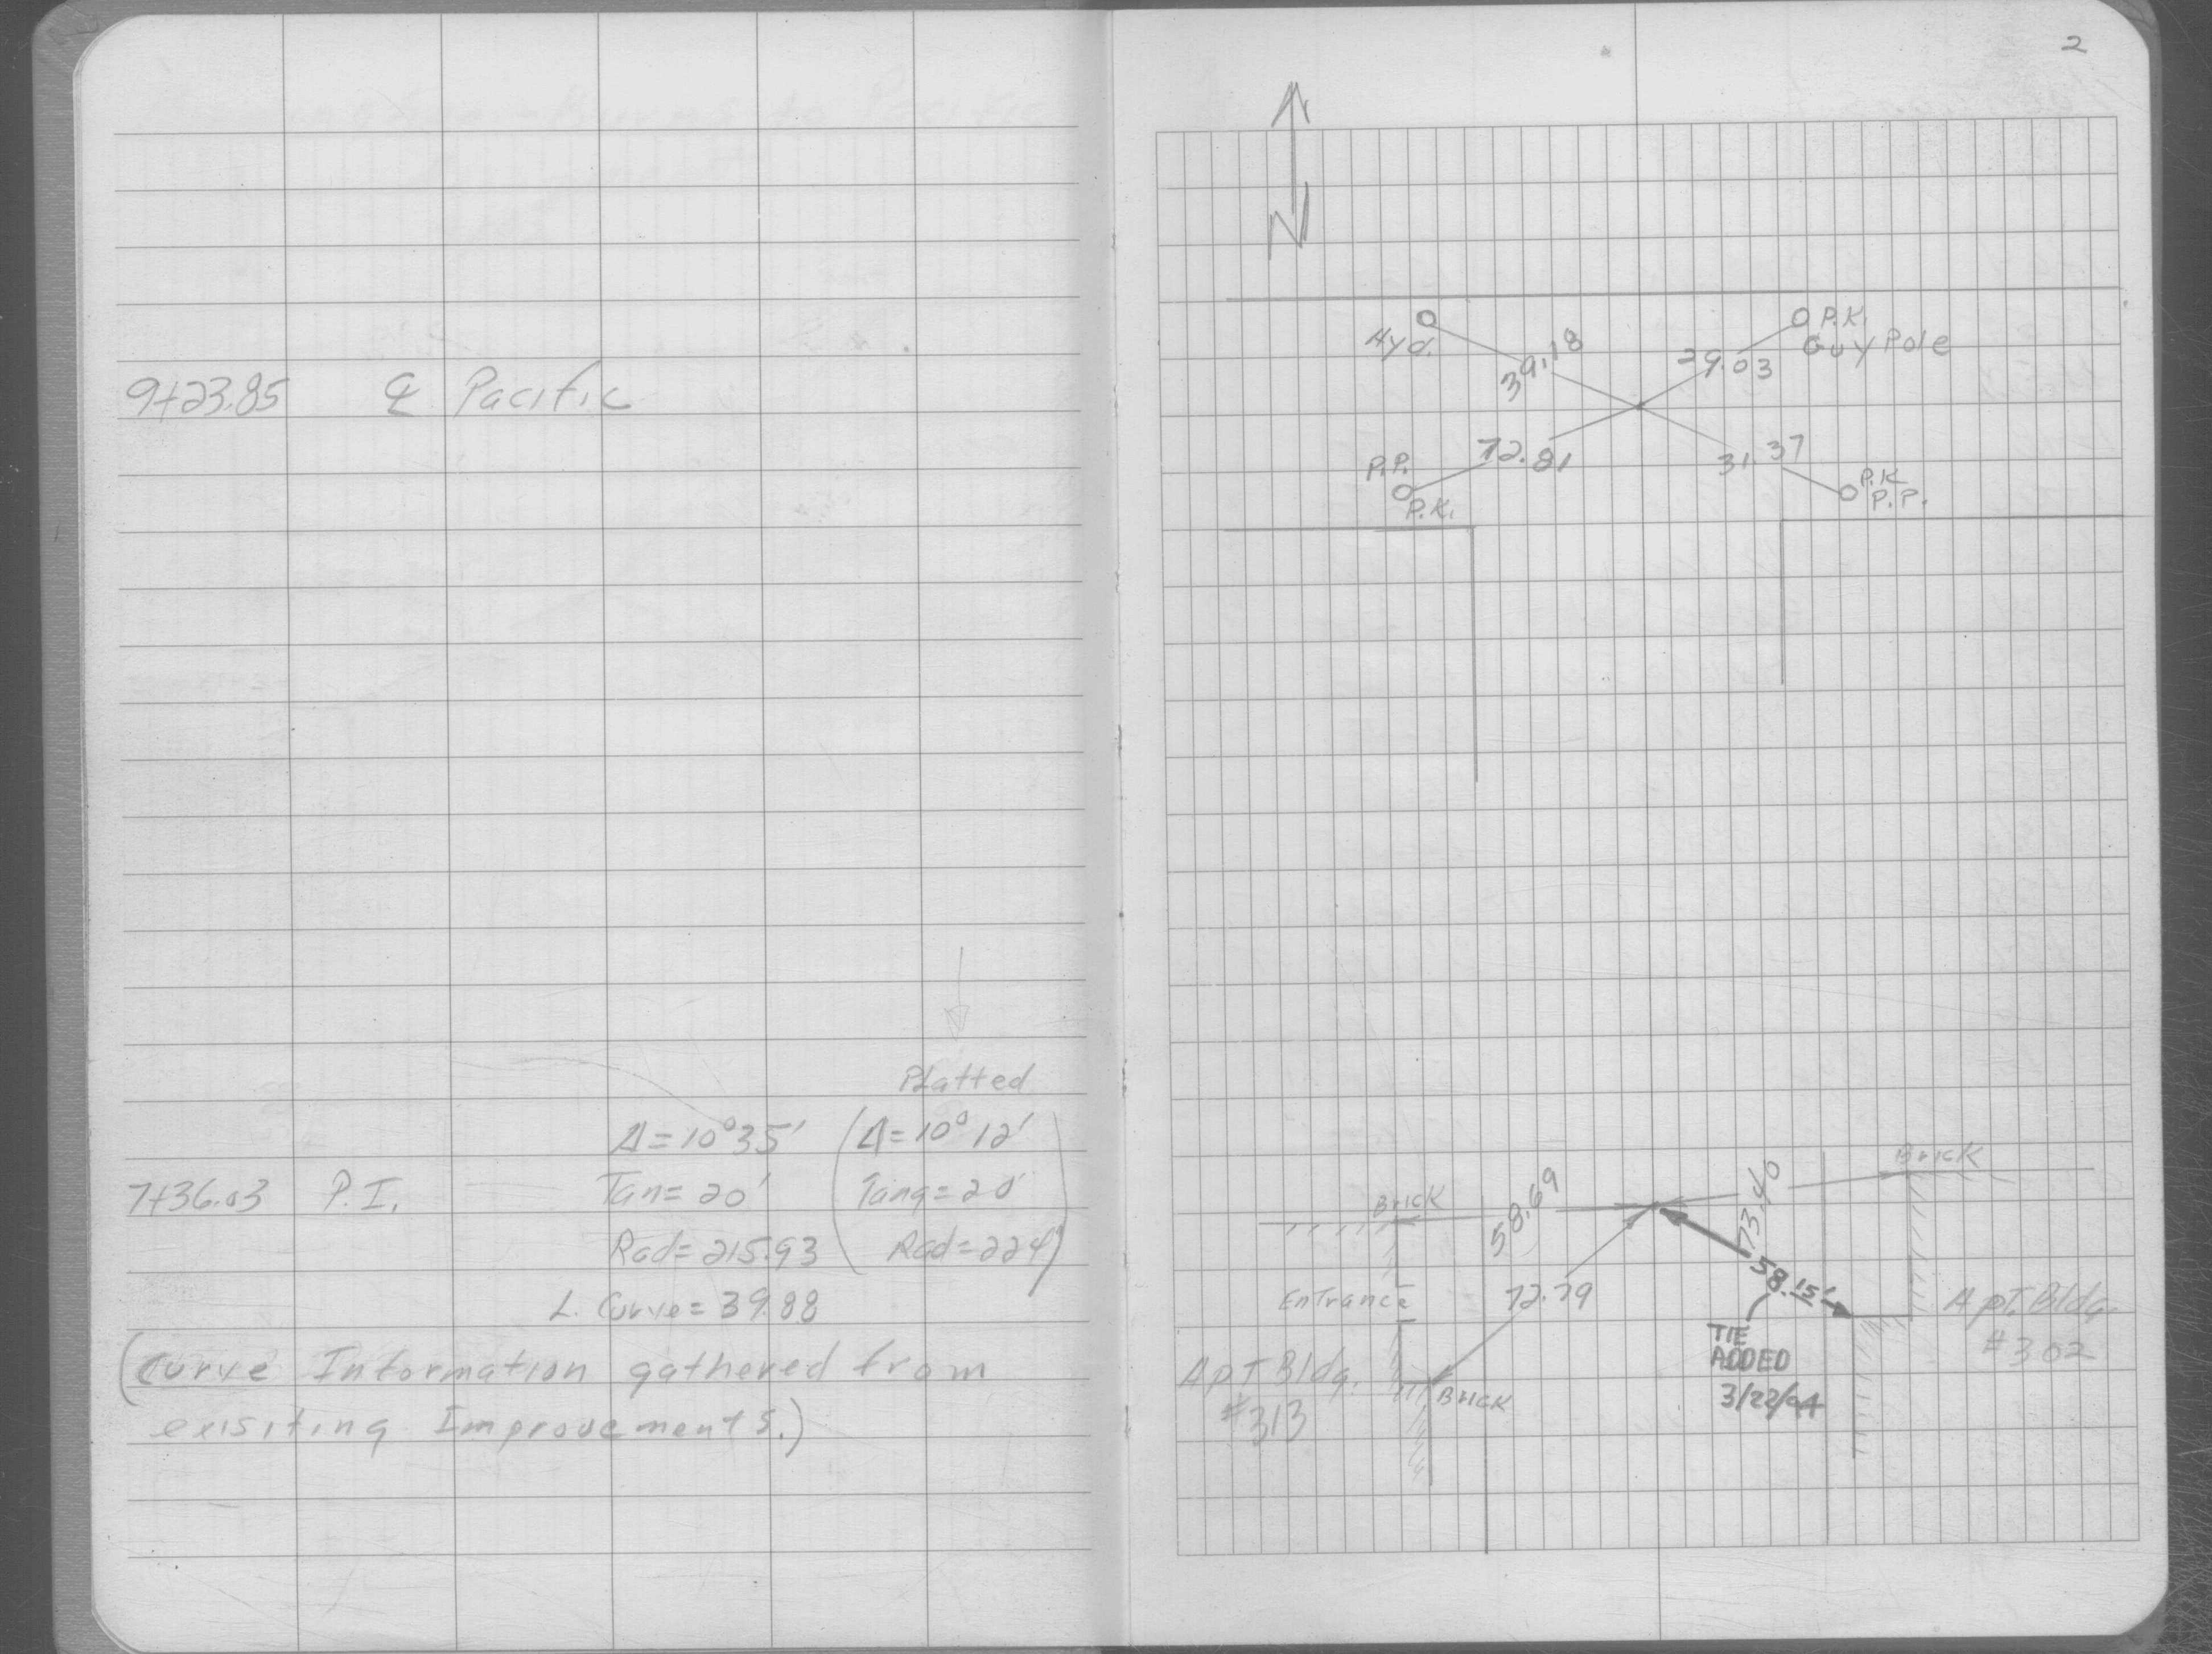 9+23.85 ℄ Pacific
Platted
Δ=10°35' (Δ=10°12'
7+36.03 P.I. Tan=20' Tang=20'
Rad=215.93 Rad=224')
L. Curve=39.88
(Curve Information gathered from
exisiting Improvements.)
2
N
Hyd.
39.18
29.03
P.K.
Guy Pole
P.P.
P.K.
72.81
31.37
P.K.
P.P.
Brick
58.69
73.40
Brick
Entrance
72.79
58.15'
Apt. Bldg.
#302
TIE
ADDED
3/22/94
Apt Bldg.
#313
Brick